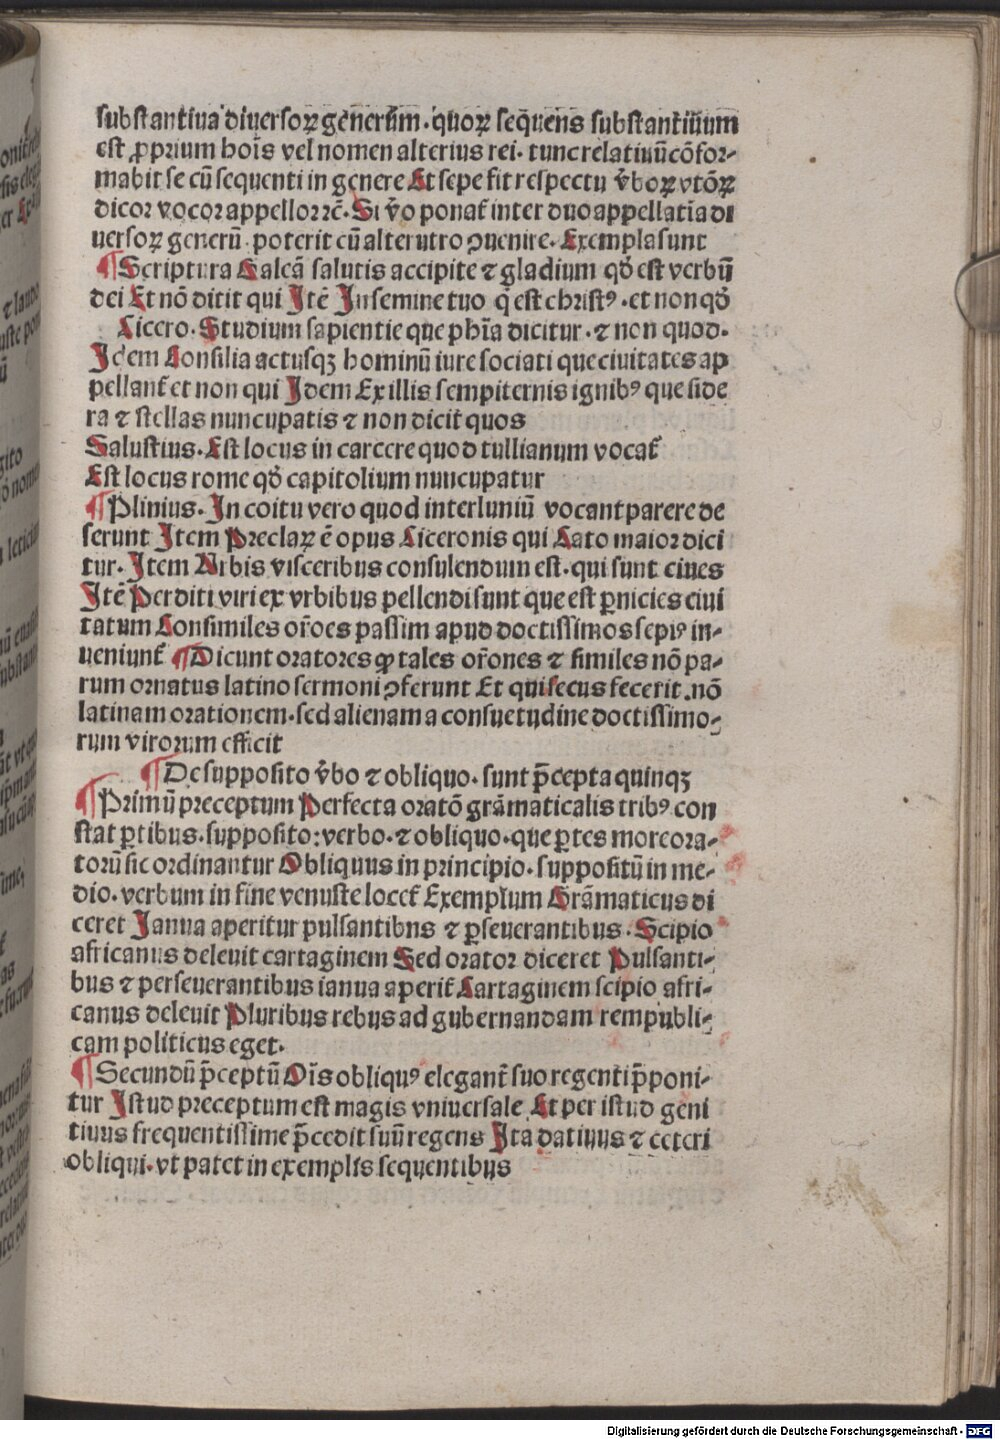 substantiua diuersoꝝ generũm · quoꝝ seq̃uens substantiũum
est ꝓprium hoĩs vel nomen alterius rei · tunc relatiuũ cõfor-
mabit se cũ sequenti in genere Et sepe fit respectu v̄boꝝ vtõꝝ
dicor vocor appellor ⁊c̃ · Si v̄o ponat̃ inter duo appellatĩa di
uersoꝝ generũ · poterit cũ alterutro ꝯuenire · Exempla sunt
¶ Scriptura Galeã salutis accipite ⁊ gladium qđ est verbũ
dei Et nõ dicit qui Itẽ In semine tuo q̃ est christꝰ · et non qđ
Cicero · Studium sapientie que phĩa dicitur · ⁊ non quod ·
Idem Consilia actusqꝫ hominũ iure sociati que ciuitates ap
pellant̃ et non qui Idem Ex illis sempiternis ignibꝰ que side
ra ⁊ stellas nuncupatis ⁊ non dicit quos
Salustius · Est locus in carcere quod tullianum vocat̃
Est locus rome qđ capitolium nuncupatur
¶ Plinius · In coitu vero quod interluniũ vocant parere de
serunt Item Preclaꝝ ẽ opus Ciceronis qui Cato maior dici
tur · Item Urbis visceribus consulendum est · qui sunt ciues
Itẽ Perditi viri ex vrbibus pellendi sunt que est ꝑnicies ciui
tatum Consimiles or̃oes passim apud doctissimos sepiꝰ in-
ueniunt̃ ¶ Dicunt oratores ꝙ tales or̃ones ⁊ similes nõ pa-
rum ornatus latino sermoni ꝯferunt Et qui secus fecerit · nõ
latinam orationem · sed alienam a consuetudine doctissimo-
rum virorum efficit
¶ De supposito v̄bo ⁊ obliquo · sunt p̃cepta quinqꝫ
¶ Primũ preceptum Perfecta oratõ grãmaticalis tribꝰ con
stat ꝑtibus · supposito : verbo · ⁊ obliquo · que ꝑtes more ora-
torũ sic ordinantur Obliquus in principio · suppositũ in me-
dio · verbum in fine venuste locet̃ Exemplum Grãmaticus di
ceret Ianua aperitur pulsantibus ⁊ ꝑseuerantibus · Scipio
africanus deleuit cartaginem Sed orator diceret Pulsanti-
bus ⁊ perseuerantibus ianua aperit̃ Cartaginem scipio afri-
canus deleuit Pluribus rebus ad gubernandam rempubli-
cam politicus eget ·
¶ Secundũ p̃ceptũ Oĩs obliquꝰ elegant̃ suo regenti p̃poni-
tur Istud preceptum est magis vniuersale Et per istud geni
tiuus frequentissime p̃cedit suũ regens Ita datiuus ⁊ ceteri
obliqui · vt patet in exemplis sequentibus
Digitalisierung gefördert durch die Deutsche Forschungsgemeinschaft - DFG